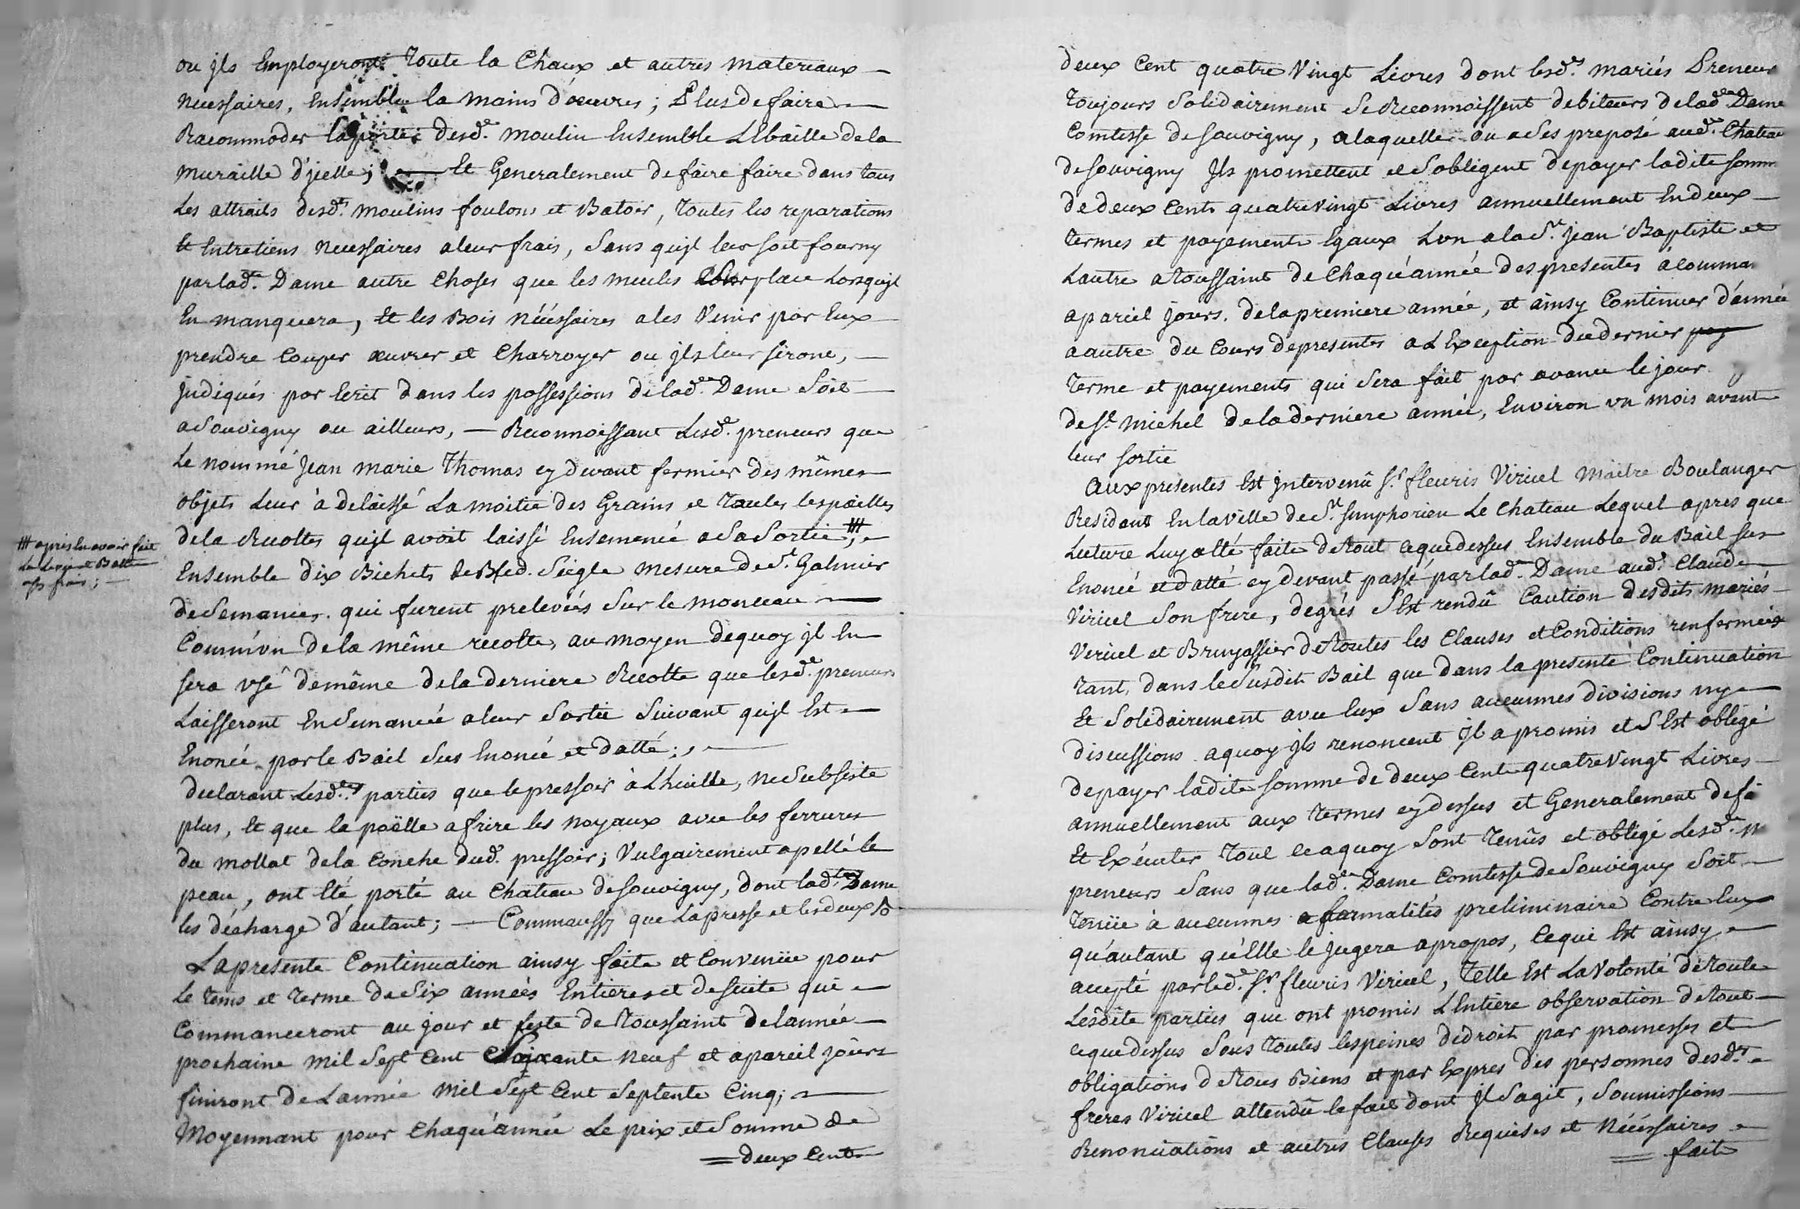 ou jls Employeront Toute la Chaux et autres materiaux
necessaires, Ensemble la mains d'oeuvres ; Plus de faire
Racommoder la porte desd.^t moulin Ensemble L'Ebaille de la
muraille d'jcelle ; Et Generalement de faire faire dans tous
Les attraits desd.^ts moulins foulons et Batoir, toutes les reparations
Et Entretiens necessaires a leur frais, sans qu'jl leur soit fourny
par lad.^te Dame autre choses que les meules sur place Lorsqu'jl
En manquera, Et les Bois néésséaires a les Venir par Eux
prendre Couper œuvrer et Charroyer ou jls leur seront,
judiqués par Ecrit dans les possessions de lad.^te Dame Soit
a Souvigny ou ailleurs, — Reconnoissant Lesd.^t preneurs que
Le nommé Jean marie Thomas cy devant fermier des mêmes
objets Leur à délaissé La moitié des Grains et Toutes les pailles
de la Recoltes qu'jl avoit laissé Ensemencé a Sa Sortie, ###
### apres En avoir fait
La Levée et Battu
a ses frais ;
Ensemble dix Bichets de Bled Seigle mesure de S.^t Galmier
de Semances qui furent prelevées Sur le monceau
Commun de la même recolte, au moyen de quoy jl En
sera usé de même de la derniere Recolte que lesd.^t preneurs
Laisseront Ensemancé a leur Sortie Suivant qu'jl Est
Enoncé par le Bail Sus Enoncé et datté ;
declarant Lesd.^tes parties que le pressoir à L'huille, ne Subsiste
plus, Et que la poëlle a frire les noyaux avec les ferrures
du mollat de la Conche dud.^t pressoir ; Vulgairement apellé le
peau, ont Eté porté au Château de Souvigny, dont lad.^te Dame
les décharge d'autant ; — Comm'aussy que La presse et les deux
La presente Continuation ainsy faite et Convenüe pour
Le tems et terme de Six années Entieres et de suite qui
Commanceront au jour et feste de Toussaint de L'année
prochaine mil Sept Cent Soixante neuf et apareil jours
finiront de L'année mil Sept Cent Septente Cinq ;
Moyennant pour Chaqu'année Le prix et Somme de
= deux Cent
deux Cent quatre Vingt Livres dont lesd.^ts mariés Preneur
Toujours Solidairement Se Reconnoissent debiteurs de lad.^te Dame
Comtesse de Souvigny, a laquelle ou a Ses preposé aud.^t Chateau
de Souvigny Jls promettent et S'obligent de payer ladite Somm
de deux Cents quatre vingt Livres annuellement En deux
termes et payements Egaux L'un a la S.^t Jean Baptiste et
L'autre a Toussaint de Chaqu'année des presentes à comman
apariel jours de la premiere année, et ainsy Continuer d'année
a autre du Cours de presentes a L'Exception du dernier pay
terme et payements qui Sera fait par avance le jour
de S.^t michel de la derniere année, Environ un mois avant
leur sortie
Aux presentes Est jntervenû S.^r fleuris Viricel Maître Boulanger
Resident En la Ville de S.^t Simphorien Le Chateau Lequel apres que
Lecture Luy a Eté faite de Tout ce que dessus Ensemble du Bail Sus
Enoncé et datté cy devant passé par lad.^te Dame aud.^t Claude
Viricel Son frere, de grés S'Est rendû Caution desdits mariés
Viricel et Bruyassier de Toutes les Clauses et Conditions renfermées
Tant dans le Susdit Bail que dans la presente Continuation
Et Solidairement avec Eux Sans aucunnes divisions ny
discussions a quoy jls renoncent jl a promis et S'Est obligé
de payer ladite Somme de deux Cent quatre Vingt Livres
annuellement aux termes cy dessus et Generalement de fa
Et Executer Tout ce a quoy Sont Tenûs et obligé Lesd.^ts m
preneurs Sans que lad.^te Dame Comtesse de Souvigny Soit
Tenüe à aucunnes formalités preliminaire Contre Eux
qu'autant qu'Elle le jugera a propos, Ce qui Est ainsy
accepté par led.^t S.^r fleuris Viricel, Telle Est La Volonté de Toute
Lesdite parties que ont promis L'Entiere observation de Tout
ce que dessus Sous Toutes les peines de droit par promesses et
obligations de Tous Biens et par Expres des personnes desd.^ts
freres Viricel attendû le fait dont jl S'agit, Soumissions
Renonciations et autres Clauses Requises et nécéssaires
= fait